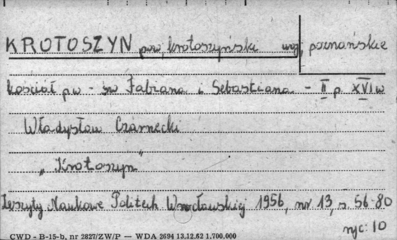 KROTOSZYN pow. krotoszyński woj. poznańskie
kościół pw - św Fabiana i Sebastiana - II p. XVI w
Władysław Czarnecki
"Krotoszyn"
Zeszyty Naukowe Politech Wrocławskiej 1956, nr 13, s. 56-80
ryc. 10
CWD - B-15-b, nr 2827/ZW/P — WDA 2694 13.12.62 1.700.000